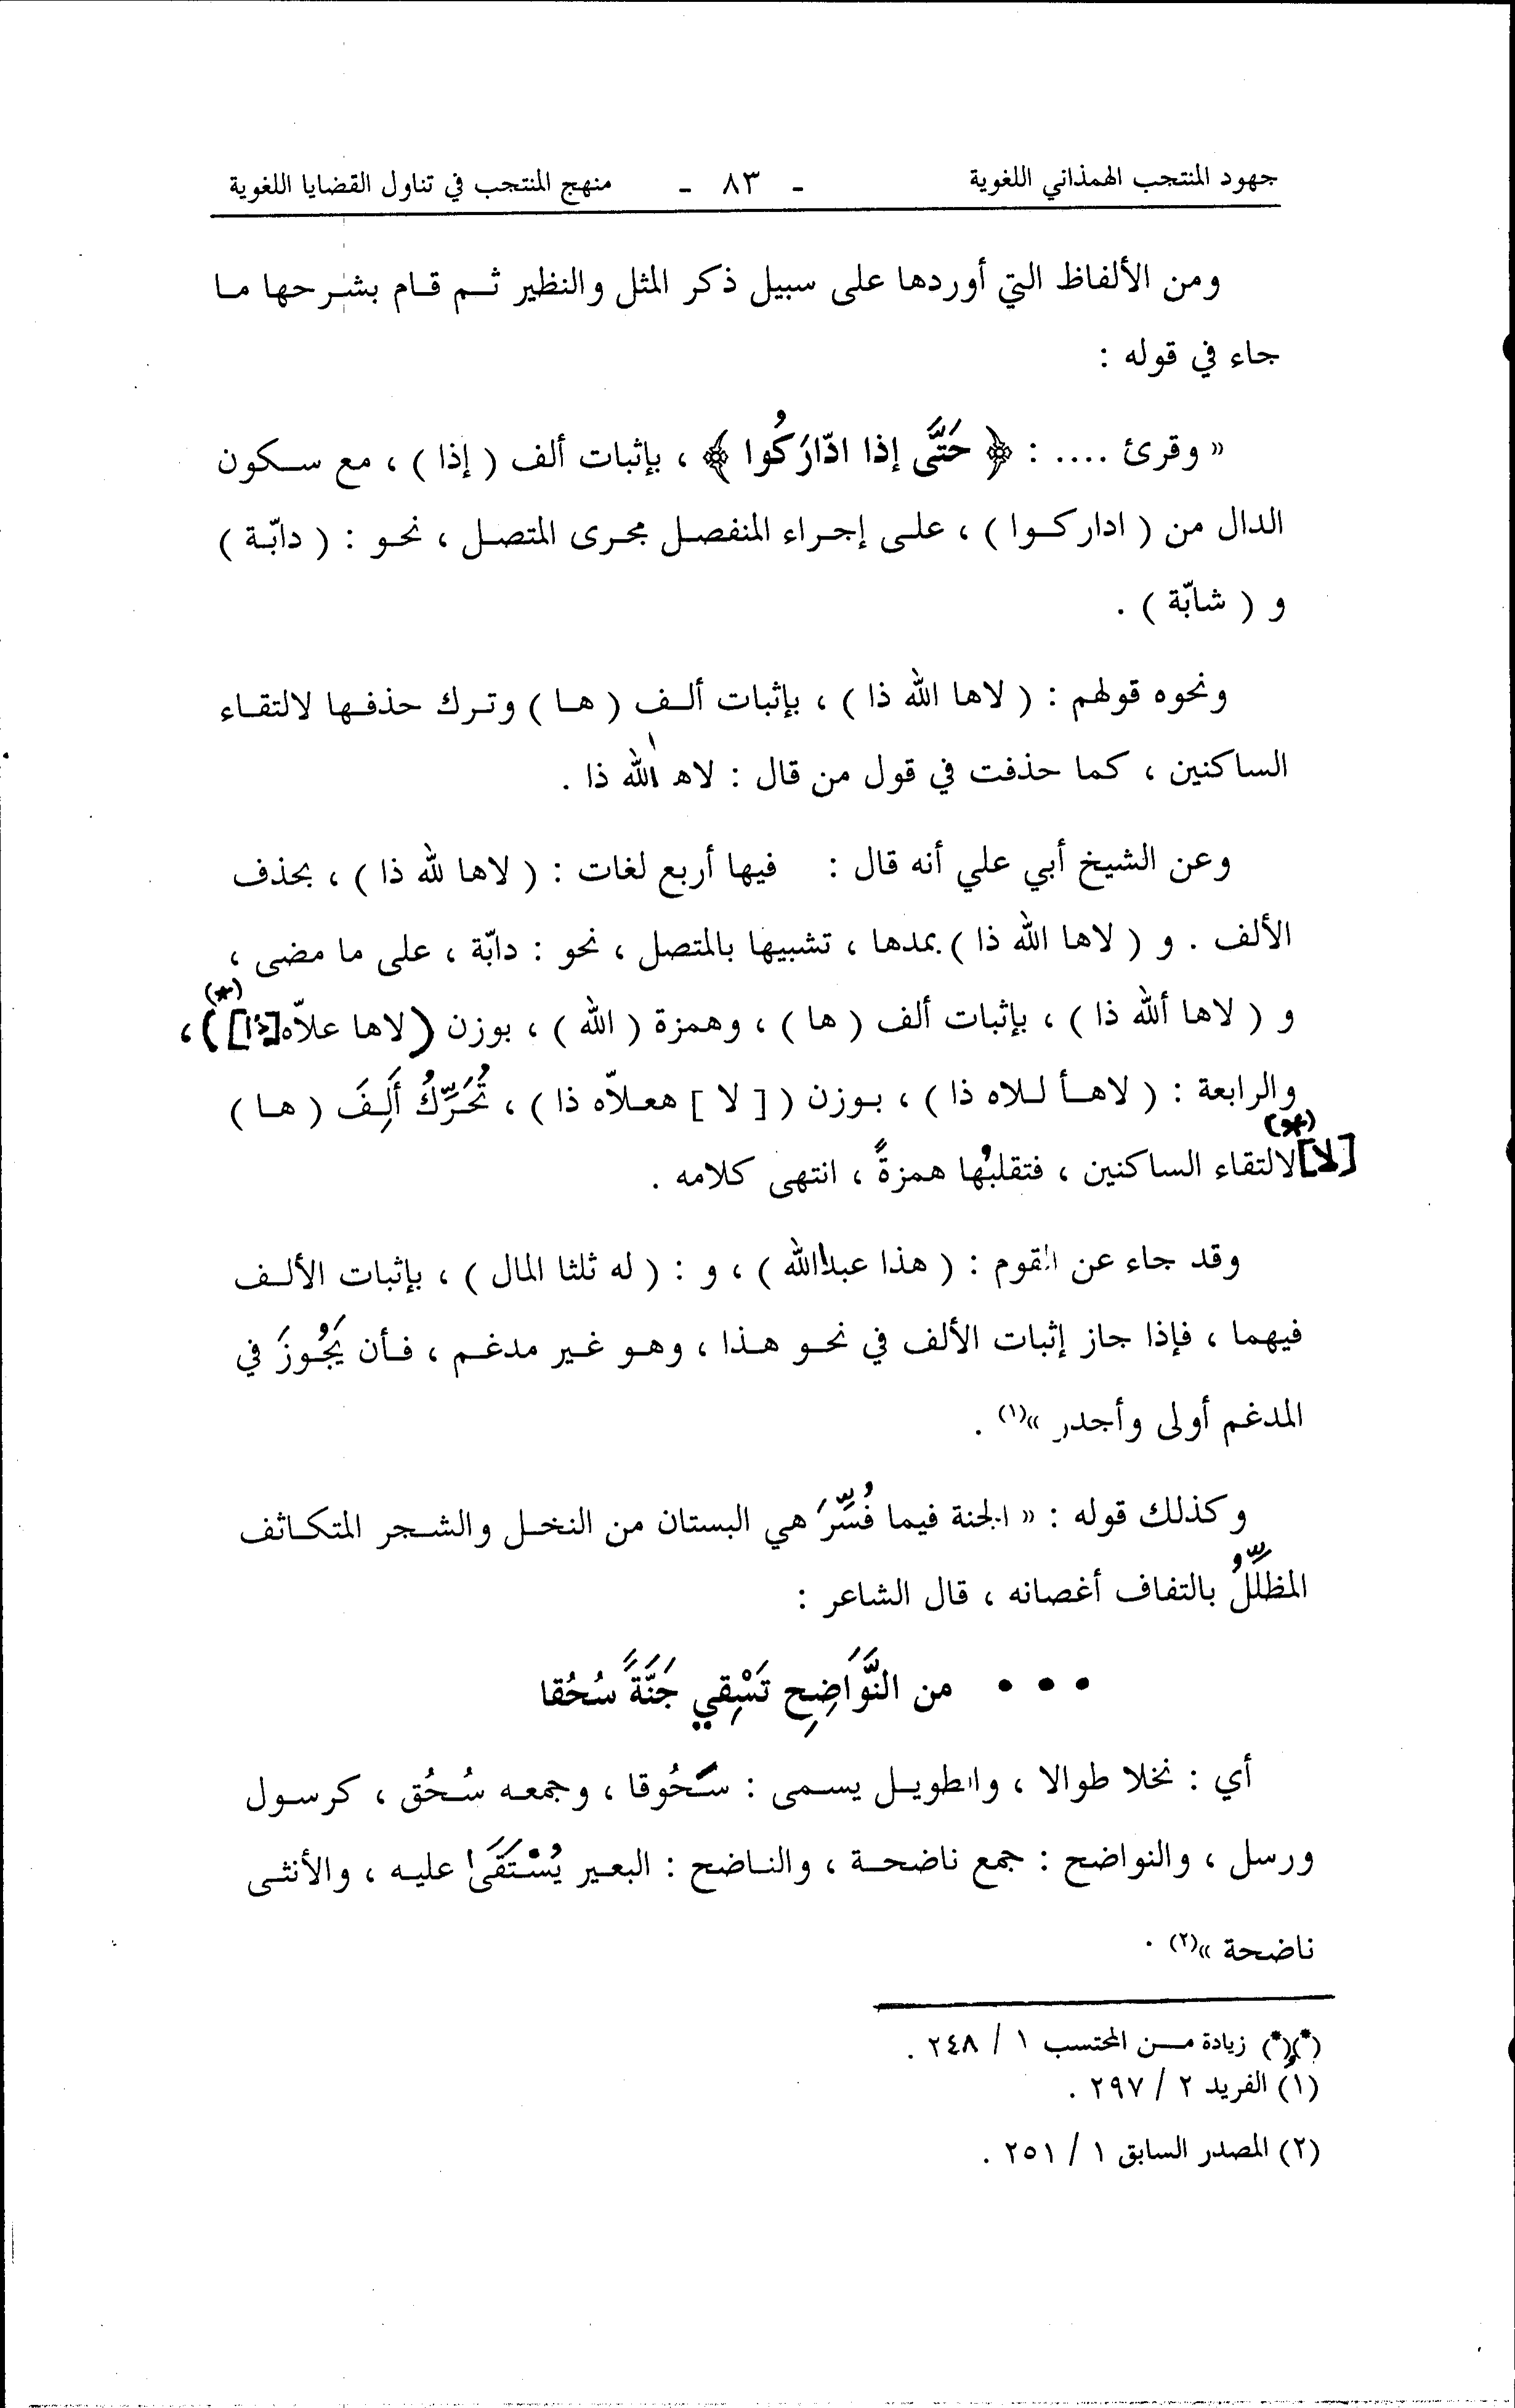 جهود المنتجب الهمذاني اللغوية - ٨٣ - منهج المنتجب في تناول القضايا اللغوية
ومن الألفاظ التي أوردها على سبيل ذكر المثل والنظير ثم قام بشرحها ما
جاء في قوله :
« وقرئ .... : ﴿ حَتَّى إذا ادّارَكُوا ﴾ ، بإثبات ألف ( إذا ) ، مع سكون
الدال من ( اداركوا ) ، على إجراء المنفصل مجرى المتصل ، نحو : ( دابّة )
و ( شابّة ) .
ونحوه قولهم : ( لاها الله ذا ) ، بإثبات ألف ( ها ) وترك حذفها لالتقاء
الساكنين ، كما حذفت في قول من قال : لاه الله ذا .
وعن الشيخ أبي علي أنه قال : فيها أربع لغات : ( لاها لله ذا ) ، بحذف
الألف . و ( لاها الله ذا ) بمدها ، تشبيها بالمتصل ، نحو : دابّة ، على ما مضى ،
و ( لاها ألله ذا ) ، بإثبات ألف ( ها ) ، وهمزة ( الله ) ، بوزن ( لاها علاّه [ذا] )(*) ،
والرابعة : ( لاهأ للاه ذا ) ، بوزن ( [ لا ] هعلاّه ذا ) ، تُحَرِّكُ أَلِفَ ( ها )
[لا](*) لالتقاء الساكنين ، فتقلبُها همزةً ، انتهى كلامه .
وقد جاء عن القوم : ( هذا عبدا الله ) ، و : ( له ثلثا المال ) ، بإثبات الألف
فيهما ، فإذا جاز إثبات الألف في نحو هذا ، وهو غير مدغم ، فأن يَجُوزَ في
المدغم أولى وأجدر »(١) .
وكذلك قوله : « الجنة فيما فُسِّرَ هي البستان من النخل والشجر المتكاثف
المظلِّلُ بالتفاف أغصانه ، قال الشاعر :
• • • من النَّوَاضِحِ تَسْقِي جَنَّةً سُحُقا
أي : نخلا طوالا ، والطويل يسمى : سَحُوقا ، وجمعه سُحُق ، كرسول
ورسل ، والنواضح : جمع ناضحة ، والناضح : البعير يُسْتَقَىٰ عليه ، والأنثى
ناضحة »(٢) .
(*)و(*) زيادة من المحتسب ١ / ٢٤٨ .
(١) الفريد ٢ / ٢٩٧ .
(٢) المصدر السابق ١ / ٢٥١ .